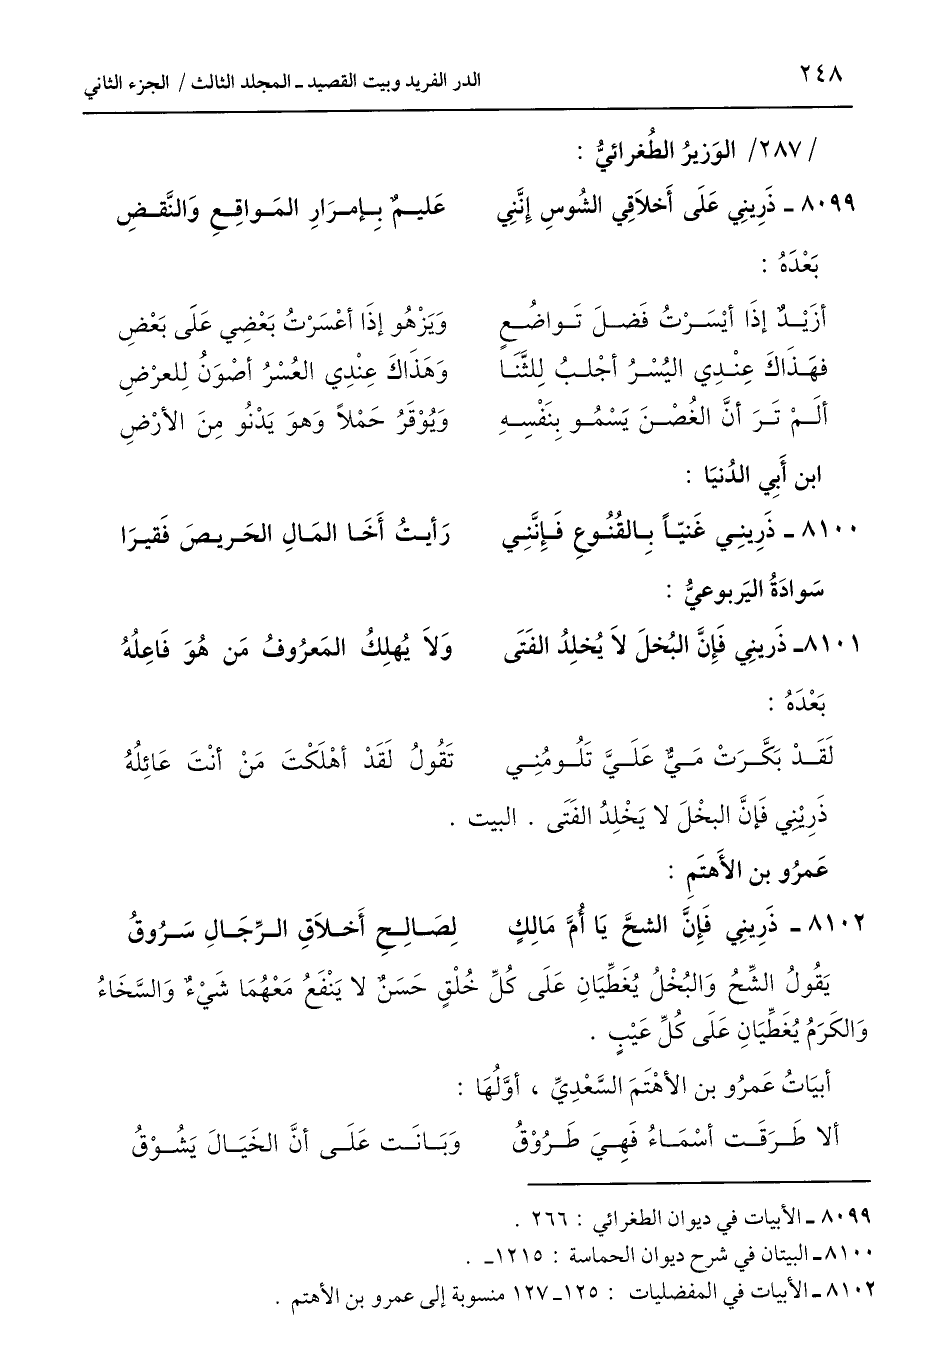 ٢٤٨ الدر الفريد وبيت القصيد ـ المجلد الثالث / الجزء الثاني
/٢٨٧/ الوَزِيرُ الطُغرائيُّ :
٨٠٩٩ ـ ذَرِينِي عَلَى أَخلاَقِي الشُوسِ إِنَّنِي عَليـمٌ بِـإمـرَارِ المَـواقِـعِ وَالنَّقـضِ
بَعْدَهُ :
أزَيْـدٌ إذَا أيْسَـرْتُ فَضـلَ تَـواضُـعٍ وَيَزْهُو إذَا أعْسَرْتُ بَعْضِي عَلَى بَعْضِ
فَهَـذَاكَ عِنْـدِي اليُسْـرُ أجْلـبُ لِلثَّنَـا وَهَذَاكَ عِنْدِي العُسْرُ أصْوَنُ لِلعرْضِ
ألَـمْ تَـرَ أنَّ الغُصْـنَ يَسْمُـو بِنَفْسِـهِ وَيُوْقَرُ حَمْلاً وَهوَ يَدْنُو مِنَ الأرْضِ
ابن أَبِي الدُنيَا :
٨١٠٠ ـ ذَرِينِـي غَنيّـاً بِـالقُنُـوعِ فَـإنَّنِـي رَأيـتُ أخَـا المَـالِ الحَـريـصَ فَقيـرَا
سَوادَةُ اليَربوعيُّ :
٨١٠١ـ ذَرينِي فَإِنَّ البُخلَ لاَ يُخلِدُ الفَتَى وَلاَ يُهلِكُ المَعرُوفُ مَن هُوَ فَاعِلُهُ
بَعْدَهُ :
لَقَـدْ بَكَّـرَتْ مَـيٌّ عَلَـيَّ تَلُـومُنِـي تَقُولُ لَقَدْ أهْلَكْتَ مَنْ أنْتَ عَائِلُهُ
ذَرِيْنِي فَإنَّ البخْلَ لا يَخْلِدُ الفَتَى . البيت .
عَمرُو بن الأَهتَمِ :
٨١٠٢ ـ ذَرِيني فَإِنَّ الشحَّ يَا أُمَّ مَالِكٍ لِصَـالِـحِ أَخـلاَقِ الـرِّجَـالِ سَـرُوقُ
يَقُولُ الشِّحُ وَالبُخْلُ يُغَطِّيَانِ عَلَى كُلِّ خُلْقٍ حَسَنٌ لا يَنْفَعُ مَعْهُمَا شَيْءٌ وَالسَّخَاءُ
وَالكَرَمُ يُغَطِّيَانِ عَلَى كُلِّ عَيْبٍ .
أبيَاتُ عَمرُو بن الأهْتَمَ السَّعْدِيِّ ، أوَّلُهَا :
ألا طَـرَقَـت أسْمَـاءُ فَهِـيَ طَـرُوْقُ وَبَـانَـت عَلَـى أنَّ الخَيَـالَ يَشُـوْقُ
٨٠٩٩ ـ الأبيات في ديوان الطغرائي : ٢٦٦ .
٨١٠٠ـ البيتان في شرح ديوان الحماسة : ١٢١٥ـ .
٨١٠٢ ـ الأبيات في المفضليات : ١٢٥ـ ١٢٧ منسوبة إلى عمرو بن الأهتم .